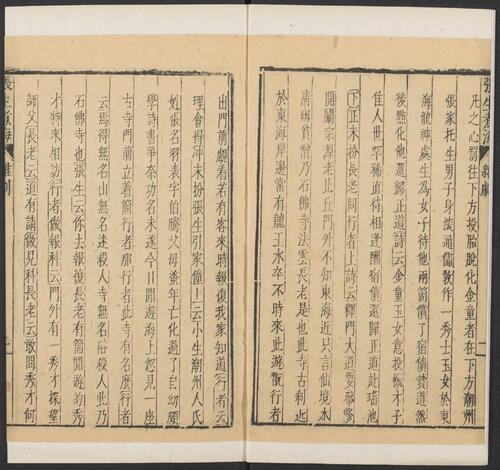 張生煮海 雜劇
凡之心罰往下方投胎脫化金童者在下方潮州
張家托生男子身深通儒教作一秀士玉女於東
海龍神處生為女子待他兩箇償了宿債貧道然
後點化他還歸正道詩云金童玉女意投機才子
佳人世罕稀直待相逢酬宿債還歸正道赴瑤池
下正末扮長老同行者上詩云釋門大道要參修
開闡宗源老比丘門外不知東海近只言仙境本
清幽貧僧乃石佛寺法雲長老是也此寺古刹近
於東海岸邊常有龍王水卒不時來此遊翫行者
出門前覷看若有客來時報復我家知道行者云
理會得沖末扮張生引家僮上云小生潮州人氏
姓張名羽表字伯騰父母蚤年亡化過了自幼頗
學詩書爭奈功名未遂今日閒遊海上忽見一座
古寺門前立着箇行者那行者此寺有名麼行者
云焉得無名山無名迷殺人寺無名俗殺人此乃
石佛寺也張生云你去報復長老有箇閒遊的秀
才特來相訪行者做報科云門外有一秀才探望
師父長老云道有請做見科長老云敢問秀才何
張生煮海 雜劇